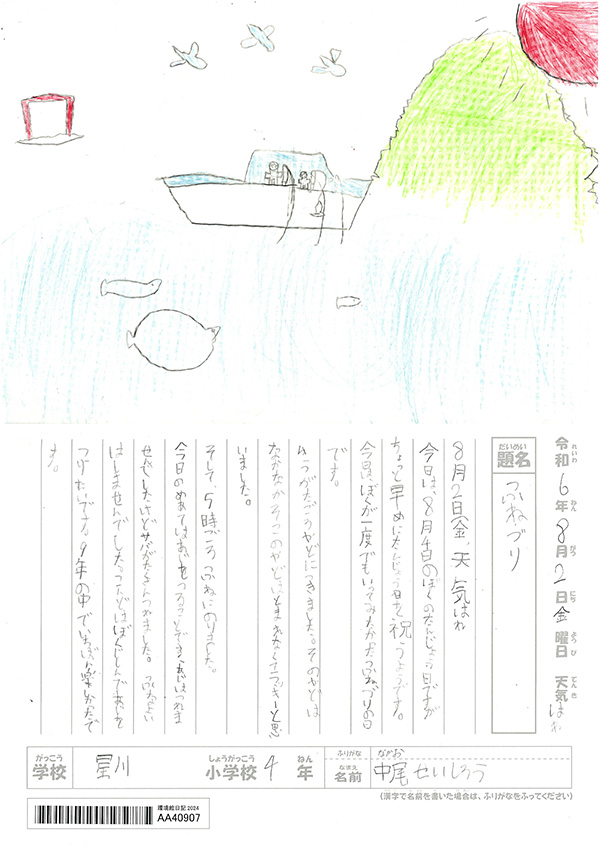 令和6年8月2日金曜日 天気はれ
れいわ ねん がつ にち よう び てんき
だいめい
題名 ふねづり
8月2日(金、天気はれ
今日は、8月4日のぼくのたんじょう日ですが
ちょっと早めにたんじょう日を祝うようです。
今日は、ぼくが一度でもいってみたかったふねづりの日
です。
4じごろやどにつきました。そのやどは
なかなかそこのやどにとまれなくてラッキーと思
いました。
そして、5時ごろふねにのりました。
今日のめあてはあじをつろうとです、あじはつれま
せんでしたけどサバがたくさんつれました。ふねよい
はしませんでした。こんどはぼくじしんであじを
つりたいです。9年の中でいちばん楽しかったで
す。
がっこう
学校 星川
しょうがっこう
小学校 4 ねん
年
ふりがな ながお
なまえ
名前 中尾せいしろう
(漢字で名前を書いた場合は、ふりがなをふってください)
環境絵日記2024
AA40907